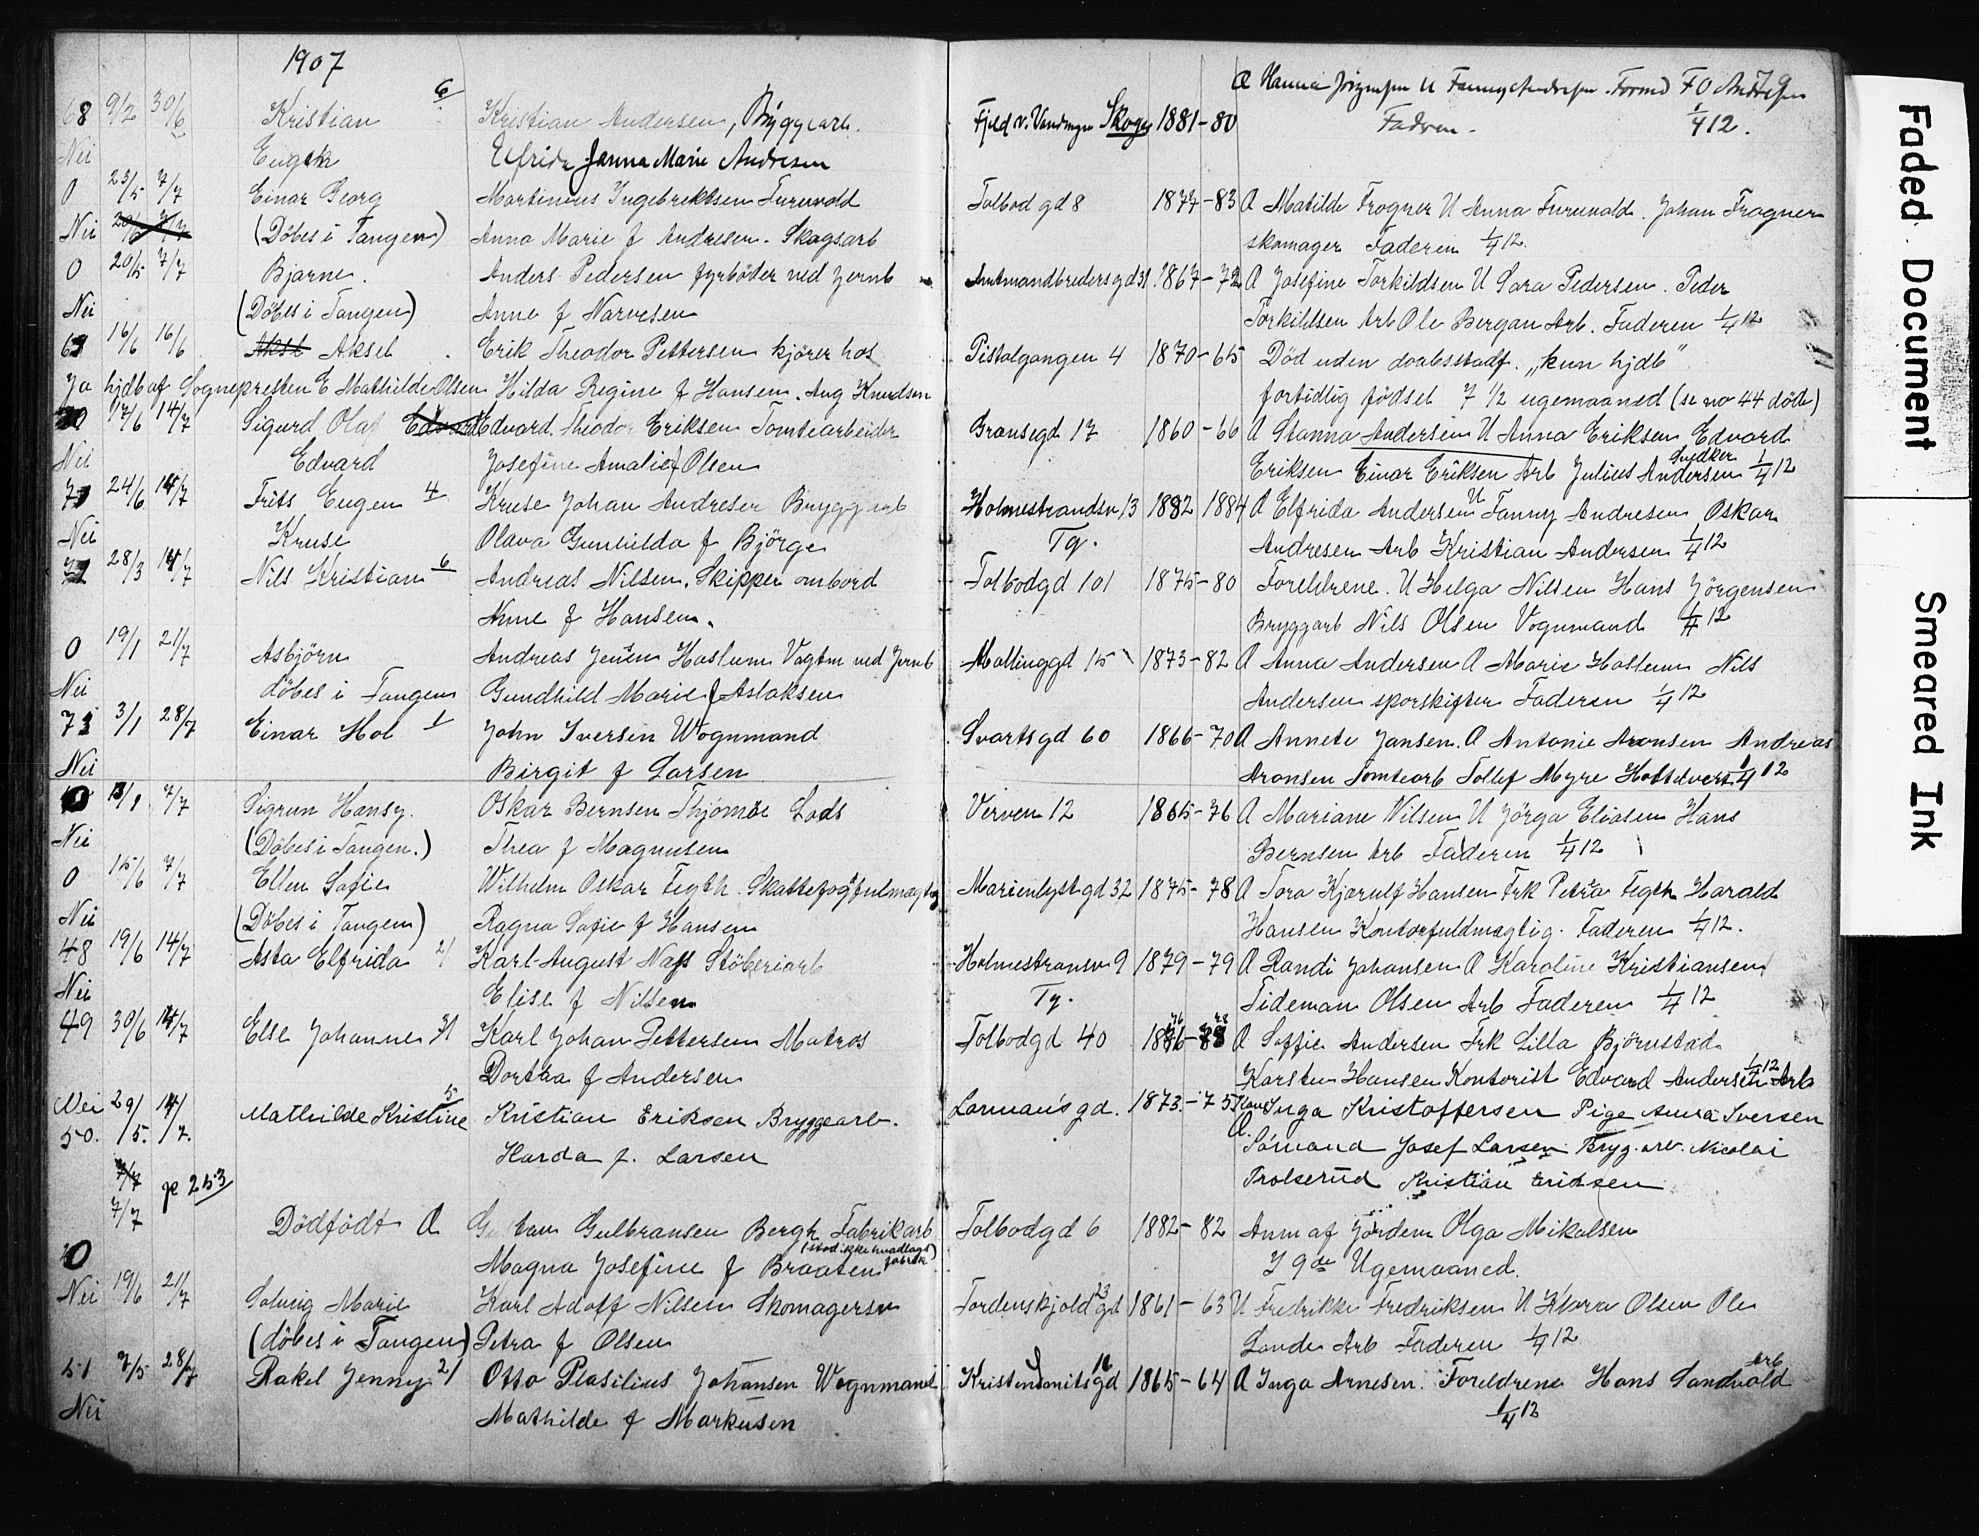 1907
6
Æ Hanna Jörgensen U Fanny Andresen. Formd F O Andresen
68 9/2 30/6 Kristian Kristian Andersen, Bryggearb. Fjeld v. Vandingn Skoger 1881-80 Fadren. 1/4 12.
Nei Eugen Elfrida Janna Marie Andresen
0 23/5 7/7 Einar Georg Martinius Ingebrektsen Furuvald Tolbodgd 8 1874-83 A Matilde Frogner U Anna Furuvald. Johan Frogner
Nei (Döbes i Tangen) Anna Marie f Andresen. Skogsarb skomager Faderen 1/4 12.
0 20/5 7/7 Bjarne. Anders Pedersen fyrböter ved Jernb Amtmandbredersgd 31 1867-72 A Josefine Torkildsen U Sara Pedersen. Peder
Nei (Döbes i Tangen) Anne f Narvesen Torkildsen Arb Ole Bergan Arb. Faderen 1/4 12
69 16/6 16/6 Aksel Erik Theodor Pettersen kjörer hos Pistolgangen 4 1870-65 Död uden daabsstadf. "kun hjdb"
Ja hjdb af Sognepresten E Mathilde Olsen Hilda Regine f Hansen. Aug Knudsen fortidlig födsel 7 1/2 ugemaaned (se no 44 döde)
70 17/6 14/7 Sigurd Olaf Edvard Edvard Theodor Eriksen Tomtearbeider Gransegd 17 1860-66 A Stanna Andersen U Anna Eriksen Edvard
Nei Edvard Josefine Amalie f Olsen Eriksen Einar Eriksen Arb Julius Andersen Snedker 1/4 12
71 24/6 14/7 Frits Eugen 4 Kruse Johan Andresen Bryggarb Holmestrandsv 13 1882 1884 A Elfrida Andersen U Fanny Andresen Oskar
Nei Kruse Olava Gunhilda f Björge Tg. Andresen Arb Kristian Andersen 1/4 12
72 28/3 14/7 Nils Kristian 6 Andreas Nilsen. Skipper ombord Tolbodgd 101 1875-80 Foreldrene. U Helga Nilsen Hans Jörgensen
Anne f Hansen. Bryggarb Nils Olsen Vognmand 1/4 12
0 19/1 21/7 Asbjörn Andreas Jensen Haslum Vagtm ved Jernb Mallinggd 15 1873-82 A Anna Andersen A Marie Haslum Nils
Nei döbes i Tangen Gundhild Marie f Aslaksen Andersen sporskifter Faderen 1/4 12
73 3/1 28/7 Einar Hol 1 John Iversen Wognmand Svartsgd 60 1866-70 A Annete Jansen. A Antonie Aronsen Andreas
Nei Birgit f Larsen Aronsen Tomtearb Tollef Myre 1/4 12
0 7/7 Sigrun Hansy. Oskar Bernsen Thjömöe Lods Verven 12 1865-76 A Mariane Nilsen U Jörga Eliasen Hans
Nei (Döbes i Tangen.) Thea f Magnusen Bernsen Arb Faderen 1/4 12
0 15/6 7/7 Ellen Sofie Wilhelm Oskar Tegth. Skattefogdfulmægtig Marienlystgd 32 1875-78 A Tora Kjærulf Hansen Frk Petra Tegth Harald
Nei (Döbes i Tangen) Ragna Sofie f Hansen Hansen Kontorfuldmægtig. Faderen 1/4 12.
48 19/6 14/7 Asta Elfrida 2/ Karl August Næss Stöberiarb Holmestransv 9 1879-79 A Randi Johansen A Karoline Kristiansen
Nei Elise f Nilsen Tg. Tideman Olsen Arb Faderen 1/4 12
49 30/6 14/7 Else Johanne 3/ Karl Johan Pettersen Matros Tolbodgd 40 A Soffie Andersen Frk Lilla Björnestad
Dortea f Andersen Karsten Hansen Kontorist Edvard Andersen Arb 1/4 12
Nei 29/5. 14/7. Mathilde Kristine 5 Kristian Eriksen Bryggearb. Lormansgd. 1873-75 Inga Kristoffersen Pige Anna Iversen
50. Harda f. Larsen Sömand Josef Larsen Bryg. arb. Nicolai
7/7 p 253 Trolserud Kristian Eriksen
7/7 Dödfödt A Gulbransen Bergh Fabrikarb Tolbodgd 6 1882-82 Anm af Jordem Olga Mikalsen
0 Magna Josefine f Braaten (stod ikke hvadlags fabrik) I 9de Ugemaaned.
Nei 19/6 21/7 Solveig Marie Karl Adolf Nilsen Skomagersv Tordenskjoldgd 23 1861-63 U Fredrikke Fredriksen U Klara Olsen Ole
(döbes i Tangen) Petra f Olsen Lande Arb Faderen 1/4 12
51 7/5 28/7 Rakel Jenny 2/ Otto Plasilius Johansen Wognmand Kristensmitsgd 16 1865-64 A Inga Arnesen. Foreldrene Hans Sandvold Arb
Nei Mathilde f Markusen 1/4 12
Faded Document
Smeared Ink